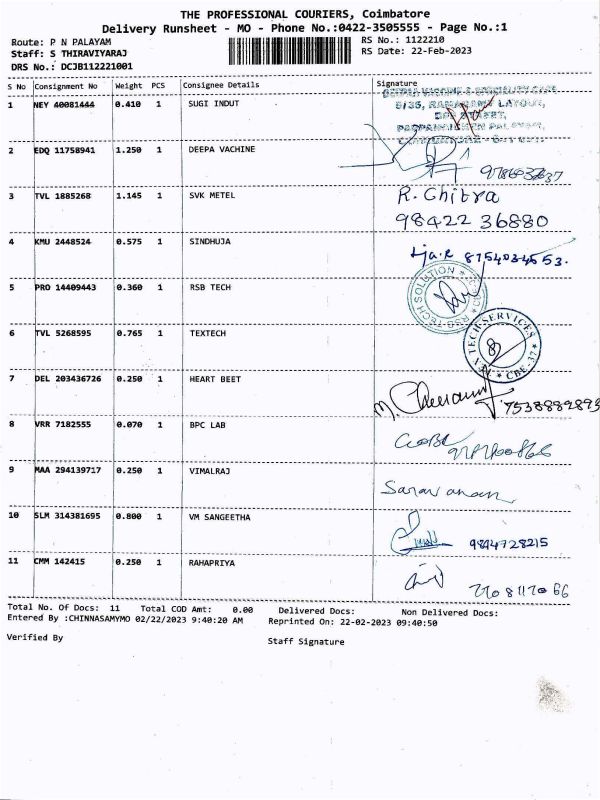 THE PROFESSIONAL COURIERS, Coimbatore
Delivery Runsheet - MO - Phone No.:0422-3505555 - Page No.:1
Route: P N PALAYAM RS No.: 1122210
Staff: S THIRAVIYARAJ RS Date: 22-Feb-2023
DRS No.: DCJB112221001
S No Consignment No Weight PCS Consignee Details Signature
1 NEY 40081444 0.410 1 SUGI INDUT
5/35, RAMASAMY LAYOUT,
2 EDQ 11758941 1.250 1 DEEPA VACHINE
3 TVL 1885268 1.145 1 SVK METEL R. Chitra
98422 36880
4 KMU 2448524 0.575 1 SINDHUJA 8754034553.
5 PRO 14409443 0.360 1 RSB TECH TECH SOLUTION
6 TVL 5268595 0.765 1 TEXTECH TECH SERVICES CBE-37
7 DEL 203436726 0.250 1 HEART BEET 7538889893
8 VRR 7182555 0.070 1 BPC LAB
9 MAA 294139717 0.250 1 VIMALRAJ Saravanan
10 SLM 314381695 0.800 1 VM SANGEETHA 9844728215
11 CMM 142415 0.250 1 RAHAPRIYA 7708117066
Total No. Of Docs: 11 Total COD Amt: 0.00 Delivered Docs: Non Delivered Docs:
Entered By :CHINNASAMYMO 02/22/2023 9:40:20 AM Reprinted On: 22-02-2023 09:40:50
Verified By Staff Signature